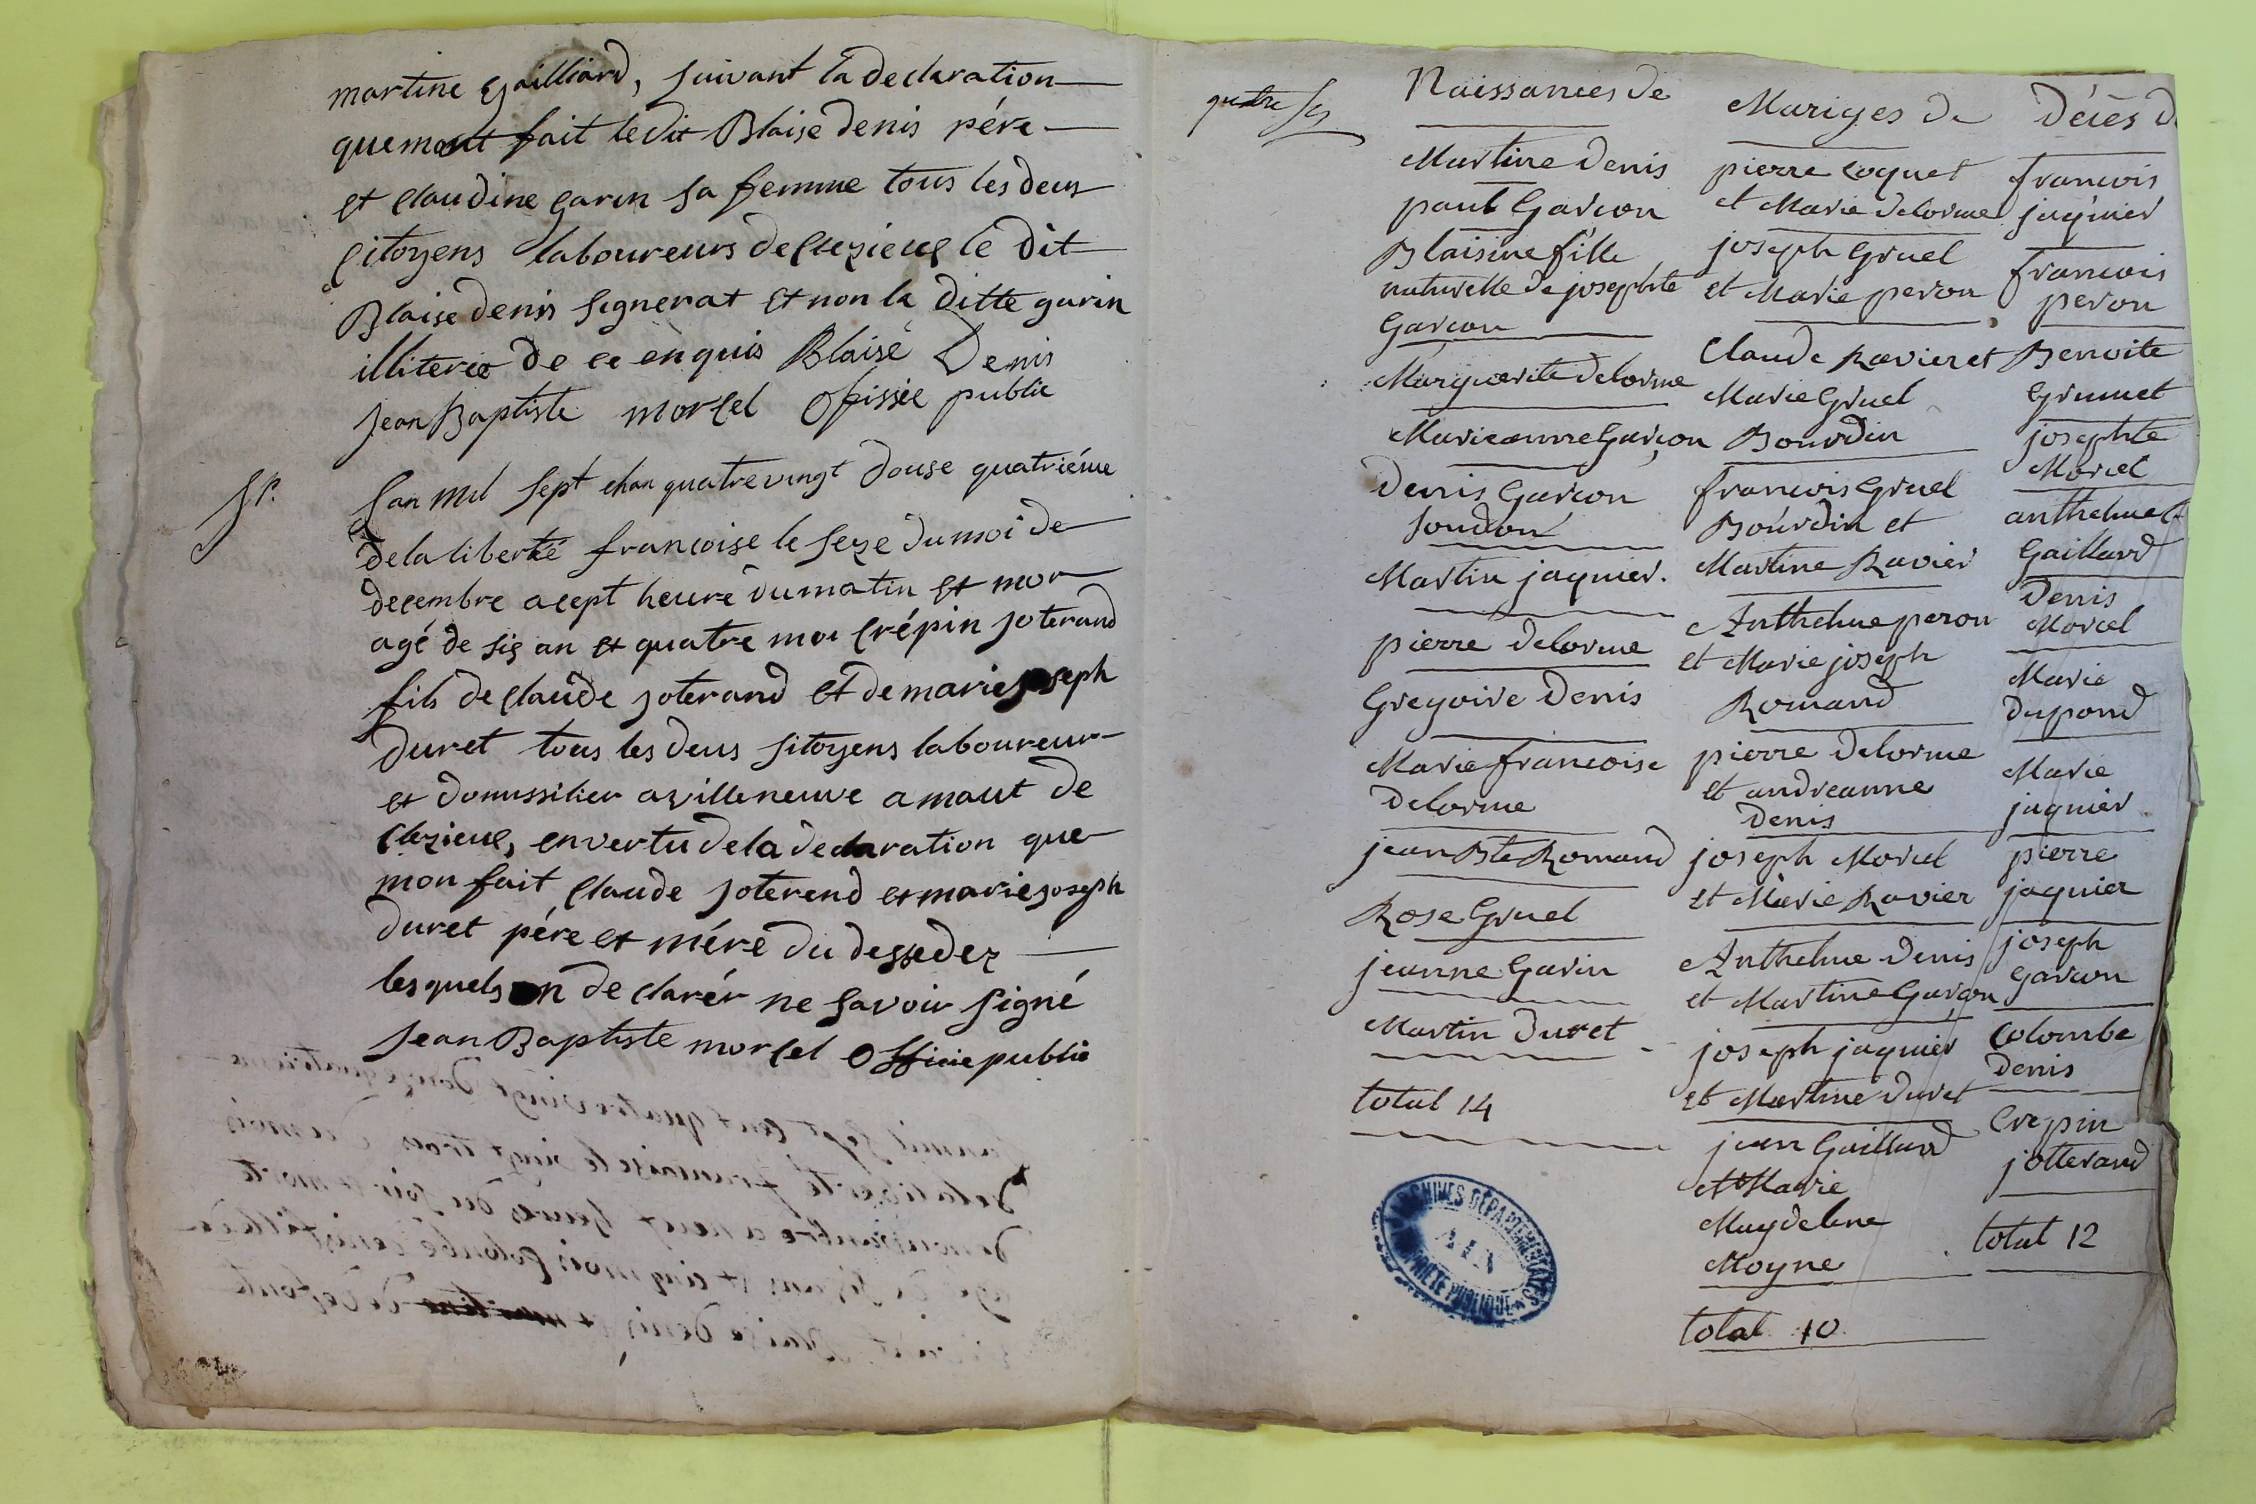 martine Gailliard, suivant la declaration
quemont fait ledit Blaise denis pére
et Claudine garin sa femme tous les deus
Citoyens laboureurs de Clezieus le dit
Blaise denis signerat et non la ditte garin
illiteree de ce enquis Blaise Denis
Jean Baptiste morcel offissie public
Lan mil sept chan quatrevingt douse quatriéme
de la liberté francoise le seze du moi de
decembre a cept heure du matin et mor
agé de sis an et quatre moi Crépin joterand
fils de Claude joterand et de marie joseph
duret tous les deus sitoyens laboureur
et domussilier a villeneuve a maut de
Clezieus, en vertu de la declaration que
mon fait Claude joterend et marie joseph
duret pére et mére du dessedez
lesquels on declarér ne savoir signé
Jean Baptiste morcel officie public
quatre
Naissances de
Martine Denis
paul Garcon
Blaisine fille
naturelle de josephte
Garcon
Marguerite delorme
Marieanne Garçon
Denis Garcon
Martin jaquier.
pierre delorme
Gregoire Denis
Marie francoise
delorme
jean Bte Romand
Rose Gruel
jeanne Garin
Martin duret
total 14
Mariges de
pierre Coquet
et Marie delorme
joseph Gruel
et Marie peron
Claude Ravier et
Marie Gruel
Bourdin
francois Gruel
Bourdin et
Martine Ravier
Anthelme peron
et Marie joseph
Romand
pierre delorme
et andreanne
Denis
joseph Morcel
et Marie Ravier
Anthelme Denis
et Martine Garçon
joseph jaquier
et Martine duret
jean Gaillard
et Marie
Magdelene
Moyne
total 10
Décès de
francois
jaquier
francois
peron
Benoite
Grumet
josephte
Morcel
anthelme
Gaillard
Denis
Morcel
Marie
dupond
Marie
jaquier
pierre
jaquier
joseph
Garcon
Colombe
denis
Crepin
jotterand
total 12
ARCHIVES DÉPARTEMENTALES
AIN
PROPRIÉTÉ PUBLIQUE